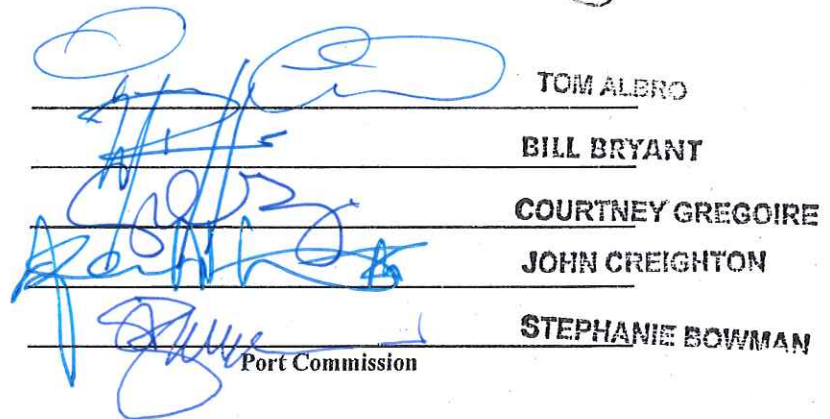 TOM ALBRO
BILL BRYANT
COURTNEY GREGOIRE
JOHN CREIGHTON
STEPHANIE BOWMAN
Port Commission